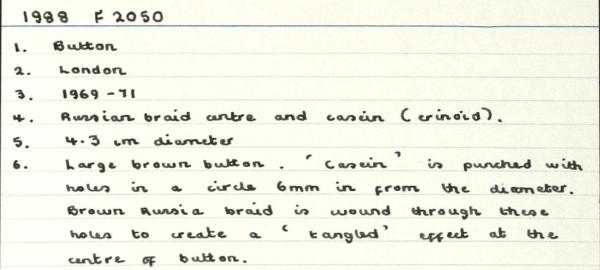 1988 F 2050
1. Button
2. London
3. 1969-71
4. Russian braid centre and casein (erinoid).
5. 4.3 cm diameter
6. Large brown button. 'Casein' is punched with
holes in a circle 6mm in from the diameter.
Brown Russia braid is wound through these
holes to create a 'tangled' effect at the
centre of button.